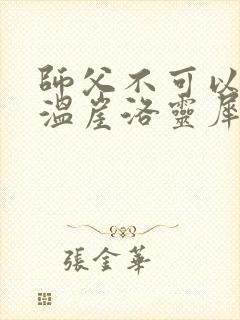 師父不可以
溫崖洛靈犀
張金華